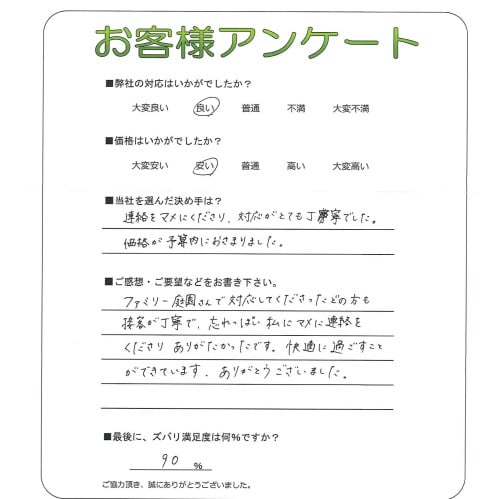 お客様アンケート
■弊社の対応はいかがでしたか？
大変良い 良い 普通 不満 大変不満
■価格はいかがでしたか？
大変安い 安い 普通 高い 大変高い
■当社を選んだ決め手は？
連絡をマメにくださり、対応がとても丁寧でした。
価格が予算内におさまりました。
■ご感想・ご要望などをお書き下さい。
ファミリー庭園さんで対応してくださったどの方も
接客が丁寧で、忘れっぽい私にマメに連絡を
くださり ありがたかったです。快適に過ごすこと
ができています。ありがとうございました。
■最後に、ズバリ満足度は何％ですか？
90 ％
ご協力頂き、誠にありがとうございました。